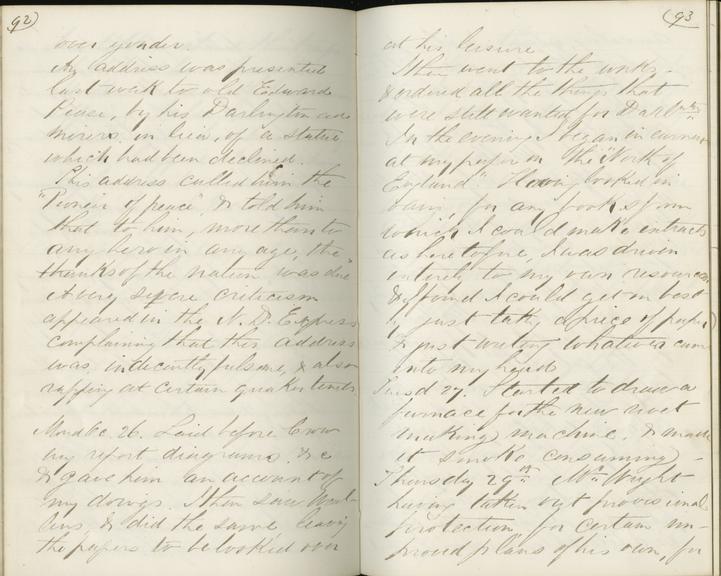 92)
over yonder.
An address was presented
last week to old Edward
Pease, by his Darlington ad
mirers, in lieu, of a statue
which had been declined.
This address called him the
"Pioneer of peace", & told him
that to him, more than to
any hero in any age, the
thanks of the nation was due
A very severe criticism
appeared in the N. D. Express
complaining that this address
was indecently fulsome, & also
rapping at certain quaker tenets.
Mond Oc. 26. Laid before Crow
my report diagrams &c
& gave him an account of
my doings. I then saw
& did the same leaving
the papers to be looked over
(93
at his leisure.
I then went to the works
& ordered all the things that
were still wanted for
In the evening I began in earnest
at my paper on the "Work of
England". Having looked in
vain, for any books from
which I could make extracts
as heretofore, I was driven
entirely to my own resources
& found I could get on best
by just taking a piece of paper
& just writing whatever came
into my head
Tuesd 27. Started to draw a
furnace for the new rivet
making machine, & made
it smoke consuming
Thursday 29th Mr Wright
having taken out provisional
protection for certain im-
proved plans of his own, for